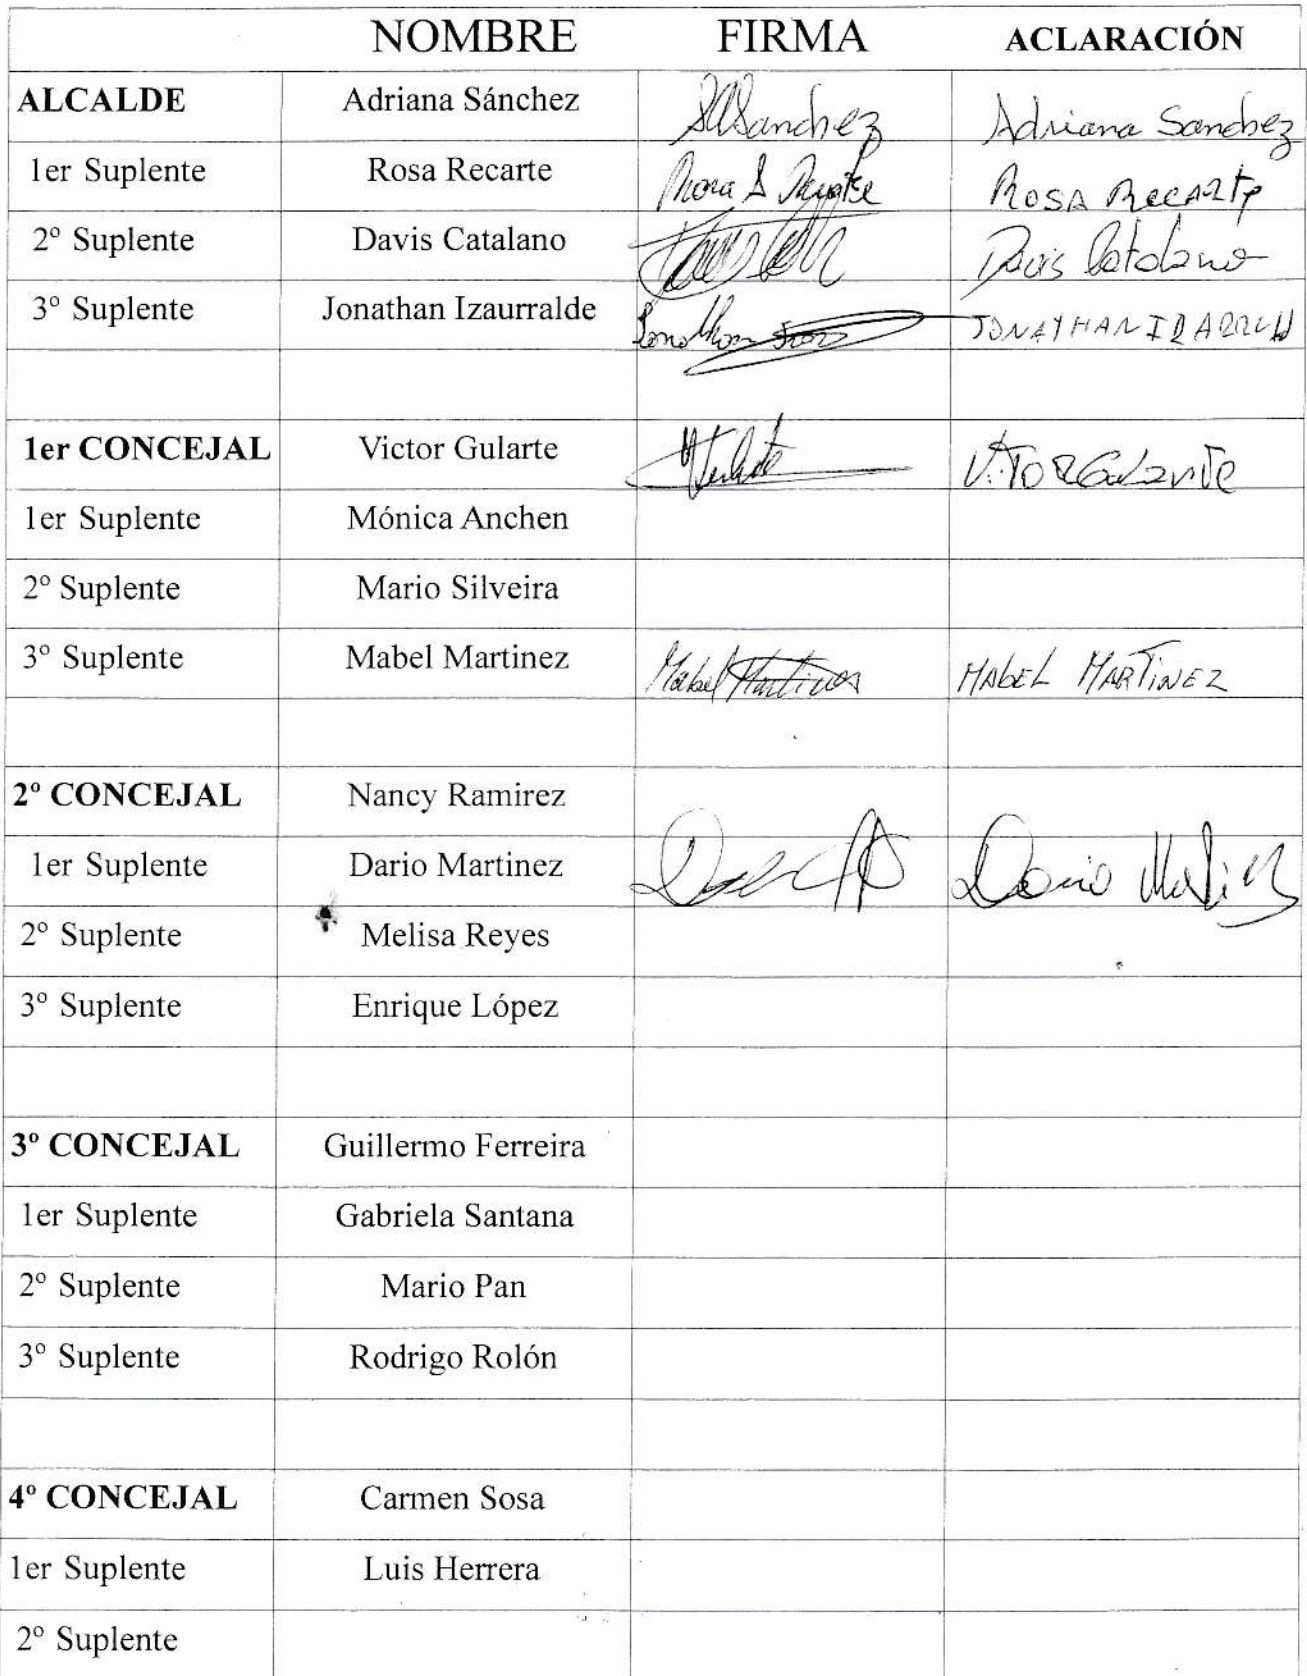 NOMBRE FIRMA ACLARACIÓN
ALCALDE Adriana Sánchez Sanchez Adriana Sanchez
1er Suplente Rosa Recarte Rosa Recarte
2º Suplente Davis Catalano Davis Catalano
3º Suplente Jonathan Izaurralde Jonathan JONATHAN
1er CONCEJAL Victor Gularte
1er Suplente Mónica Anchen
2º Suplente Mario Silveira
3º Suplente Mabel Martinez Mabel Martinez MABEL MARTINEZ
2º CONCEJAL Nancy Ramirez
1er Suplente Dario Martinez Dario
2º Suplente Melisa Reyes
3º Suplente Enrique López
3º CONCEJAL Guillermo Ferreira
1er Suplente Gabriela Santana
2º Suplente Mario Pan
3º Suplente Rodrigo Rolón
4º CONCEJAL Carmen Sosa
1er Suplente Luis Herrera
2º Suplente